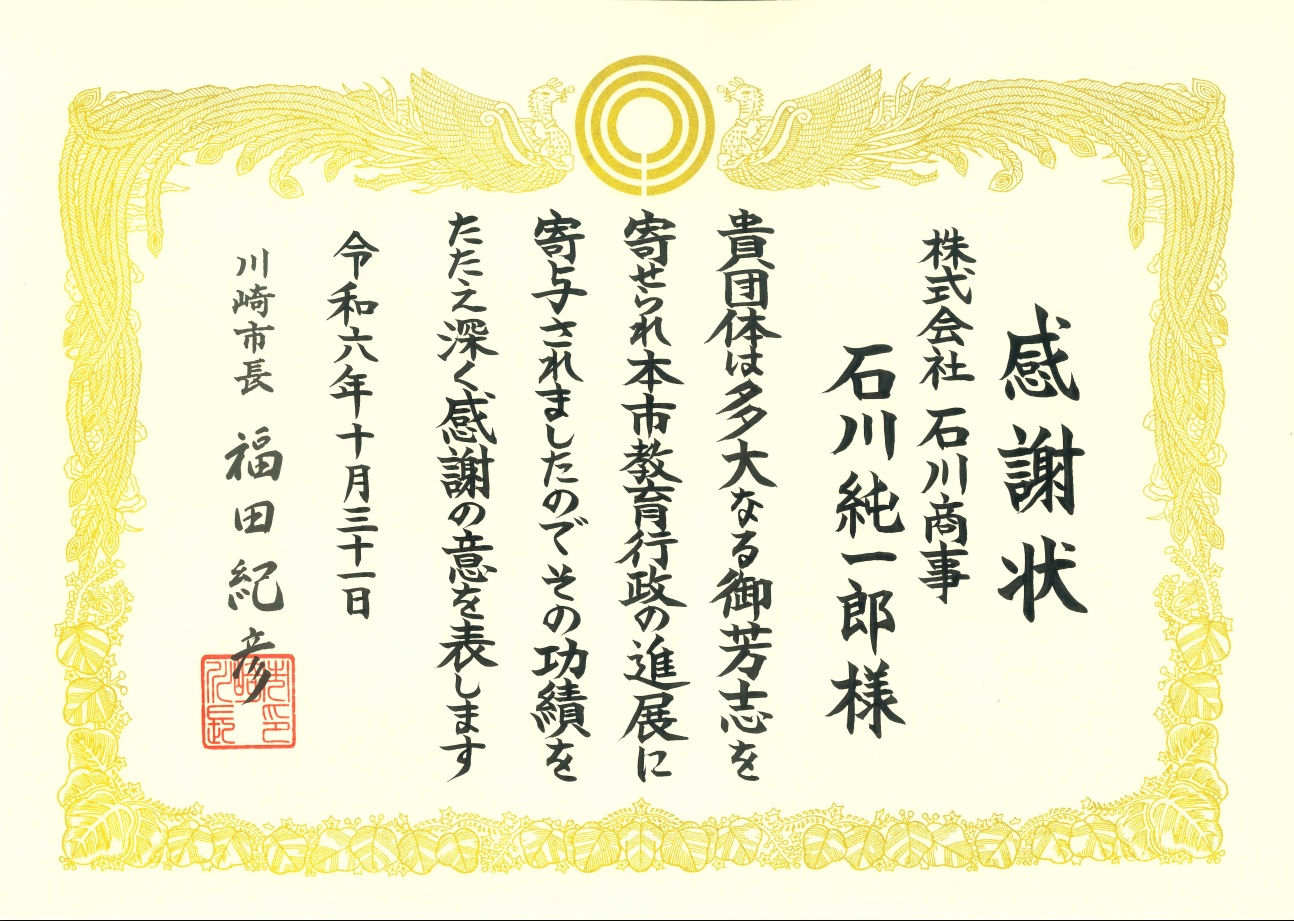 感謝状
株式会社 石川商事
石川純一郎様
貴団体は多大なる御芳志を
寄せられ本市教育行政の進展に
寄与されましたのでその功績を
たたえ深く感謝の意を表します
令和六年十月三十一日
川崎市長 福田紀彦